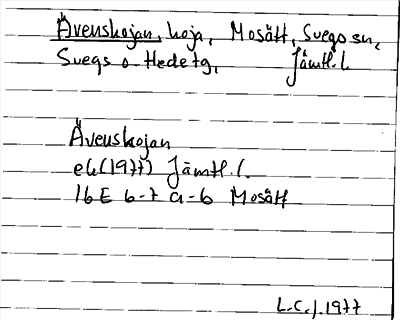 Ävenskojan, koja, Mosätt, Svegs sn,
Svegs o. Hede tg, Jämtl. l.
Ävenskojan
ek (1977) Jämtl. l.
16E 6-7 a-b Mosätt
L.C.J. 1977